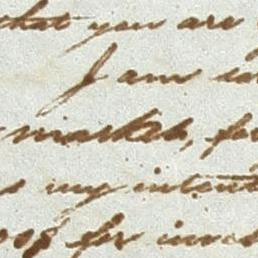 that you are
I am
market, for
my intent
for inves